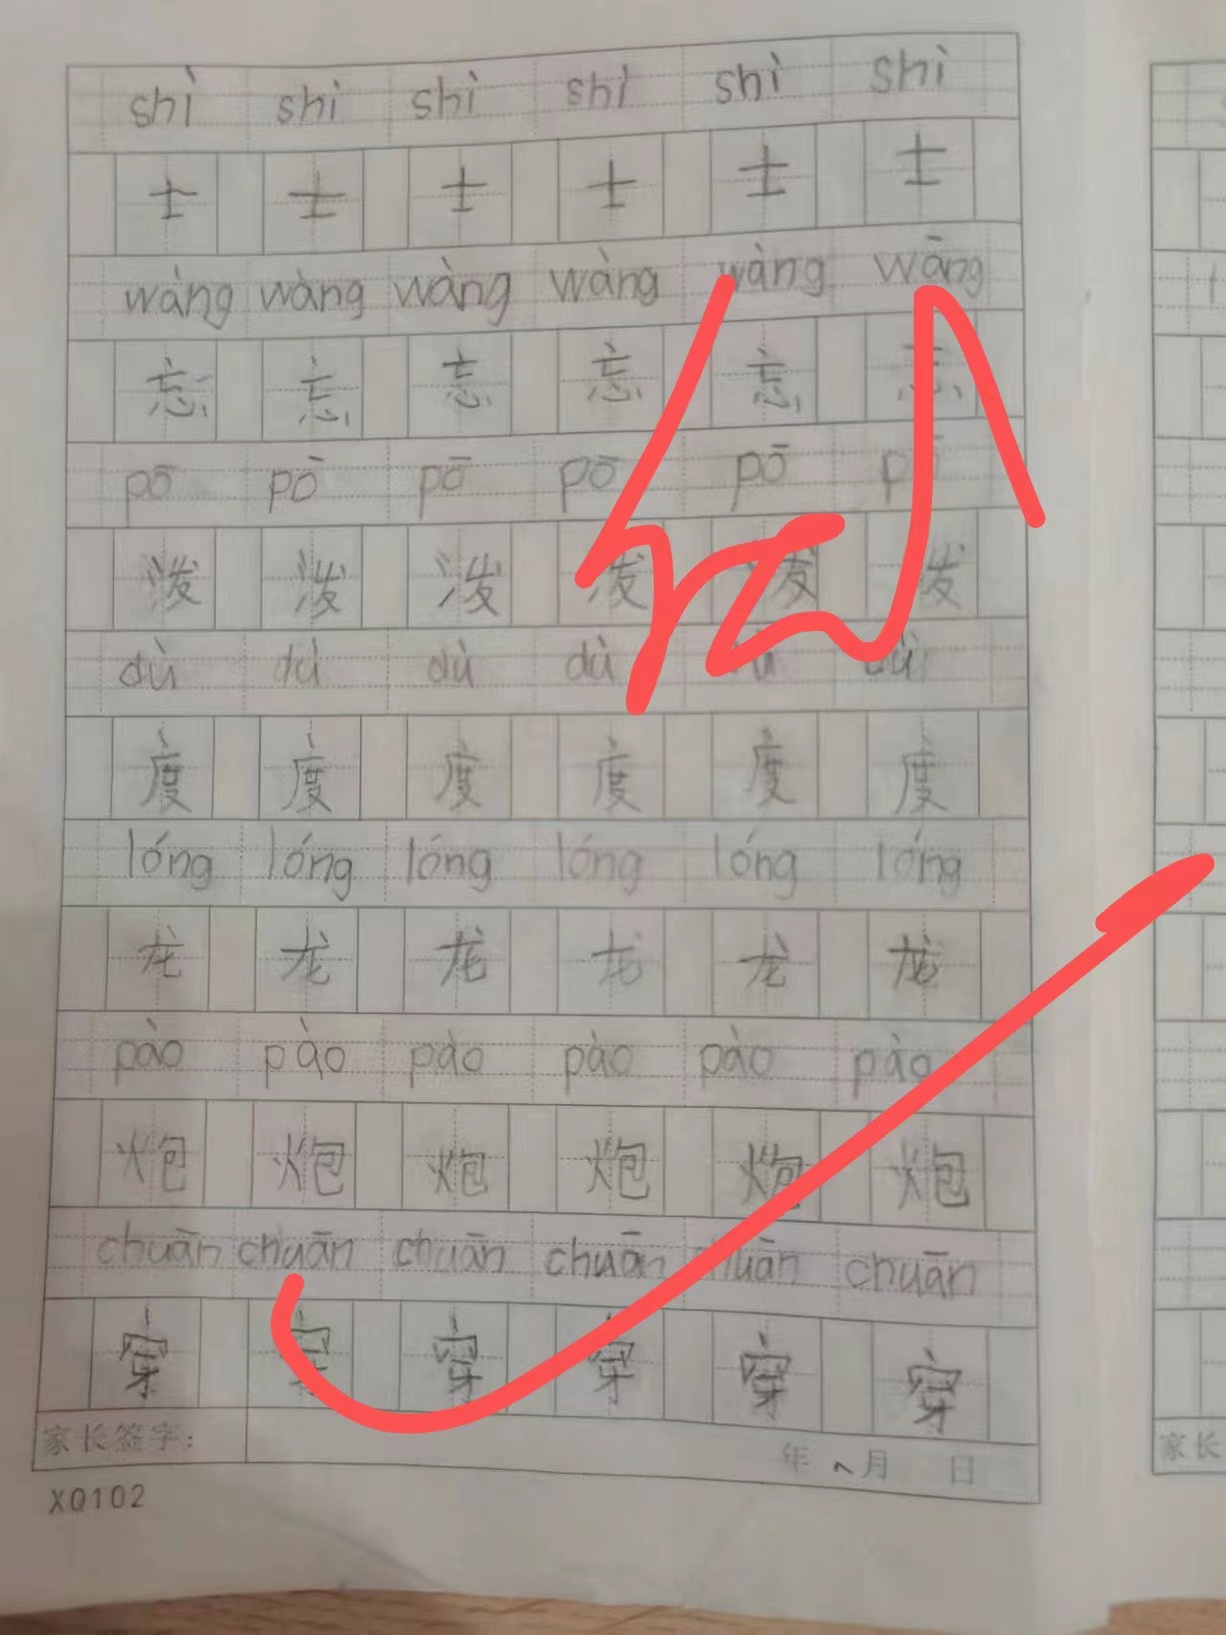 shì shì shì shì shì shì
士 士 士 士 士 士
wàng wàng wàng wàng wàng wāng
忘 忘 忘 忘 忘 忘
pō pō pō pō pō pō
泼 泼 泼 泼 泼 泼
dù dù dù dù dù dù
度 度 度 度 度 度
lóng lóng lóng lóng lóng lóng
龙 龙 龙 龙 龙 龙
pào pào pào pào pào pào
炮 炮 炮 炮 炮 炮
chuān chuān chuān chuān chuān chuān
穿 穿 穿 穿 穿 穿
家长签字: 年 月 日
X0102
家长